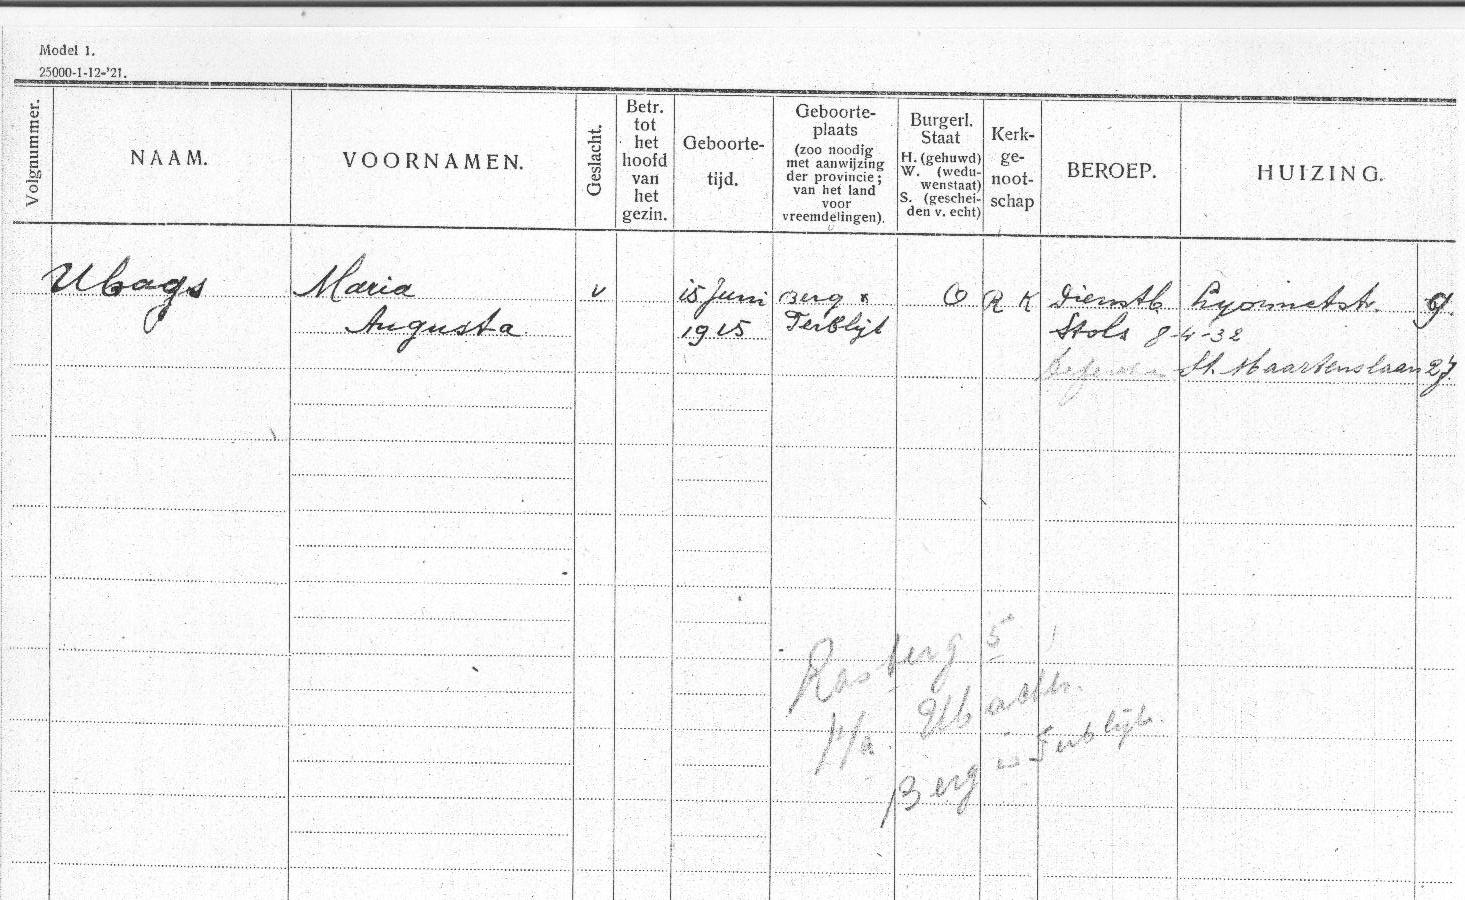 Model 1.
25000-1-12-'21.
Volgnummer.
NAAM.
VOORNAMEN.
Geslacht.
Betr.
tot
het
hoofd
van
het
gezin.
Geboorte-
tijd.
Geboorte-
plaats
(zoo noodig
met aanwijzing
der provincie;
van het land
voor
vreemdelingen).
Burgerl.
Staat
H. (gehuwd)
W. (wedu-
wenstaat)
S. (geschei-
den v. echt)
Kerk-
ge-
noot-
schap
BEROEP.
HUIZING.
Ubags Maria v 15 Juni Berg O R K Dienstb. 9.
Augusta 1915 Terblijt Stols 8-4-32
St. Maartenslaan 27
Rasberg 5
p/a.
Berg en Terblijt.